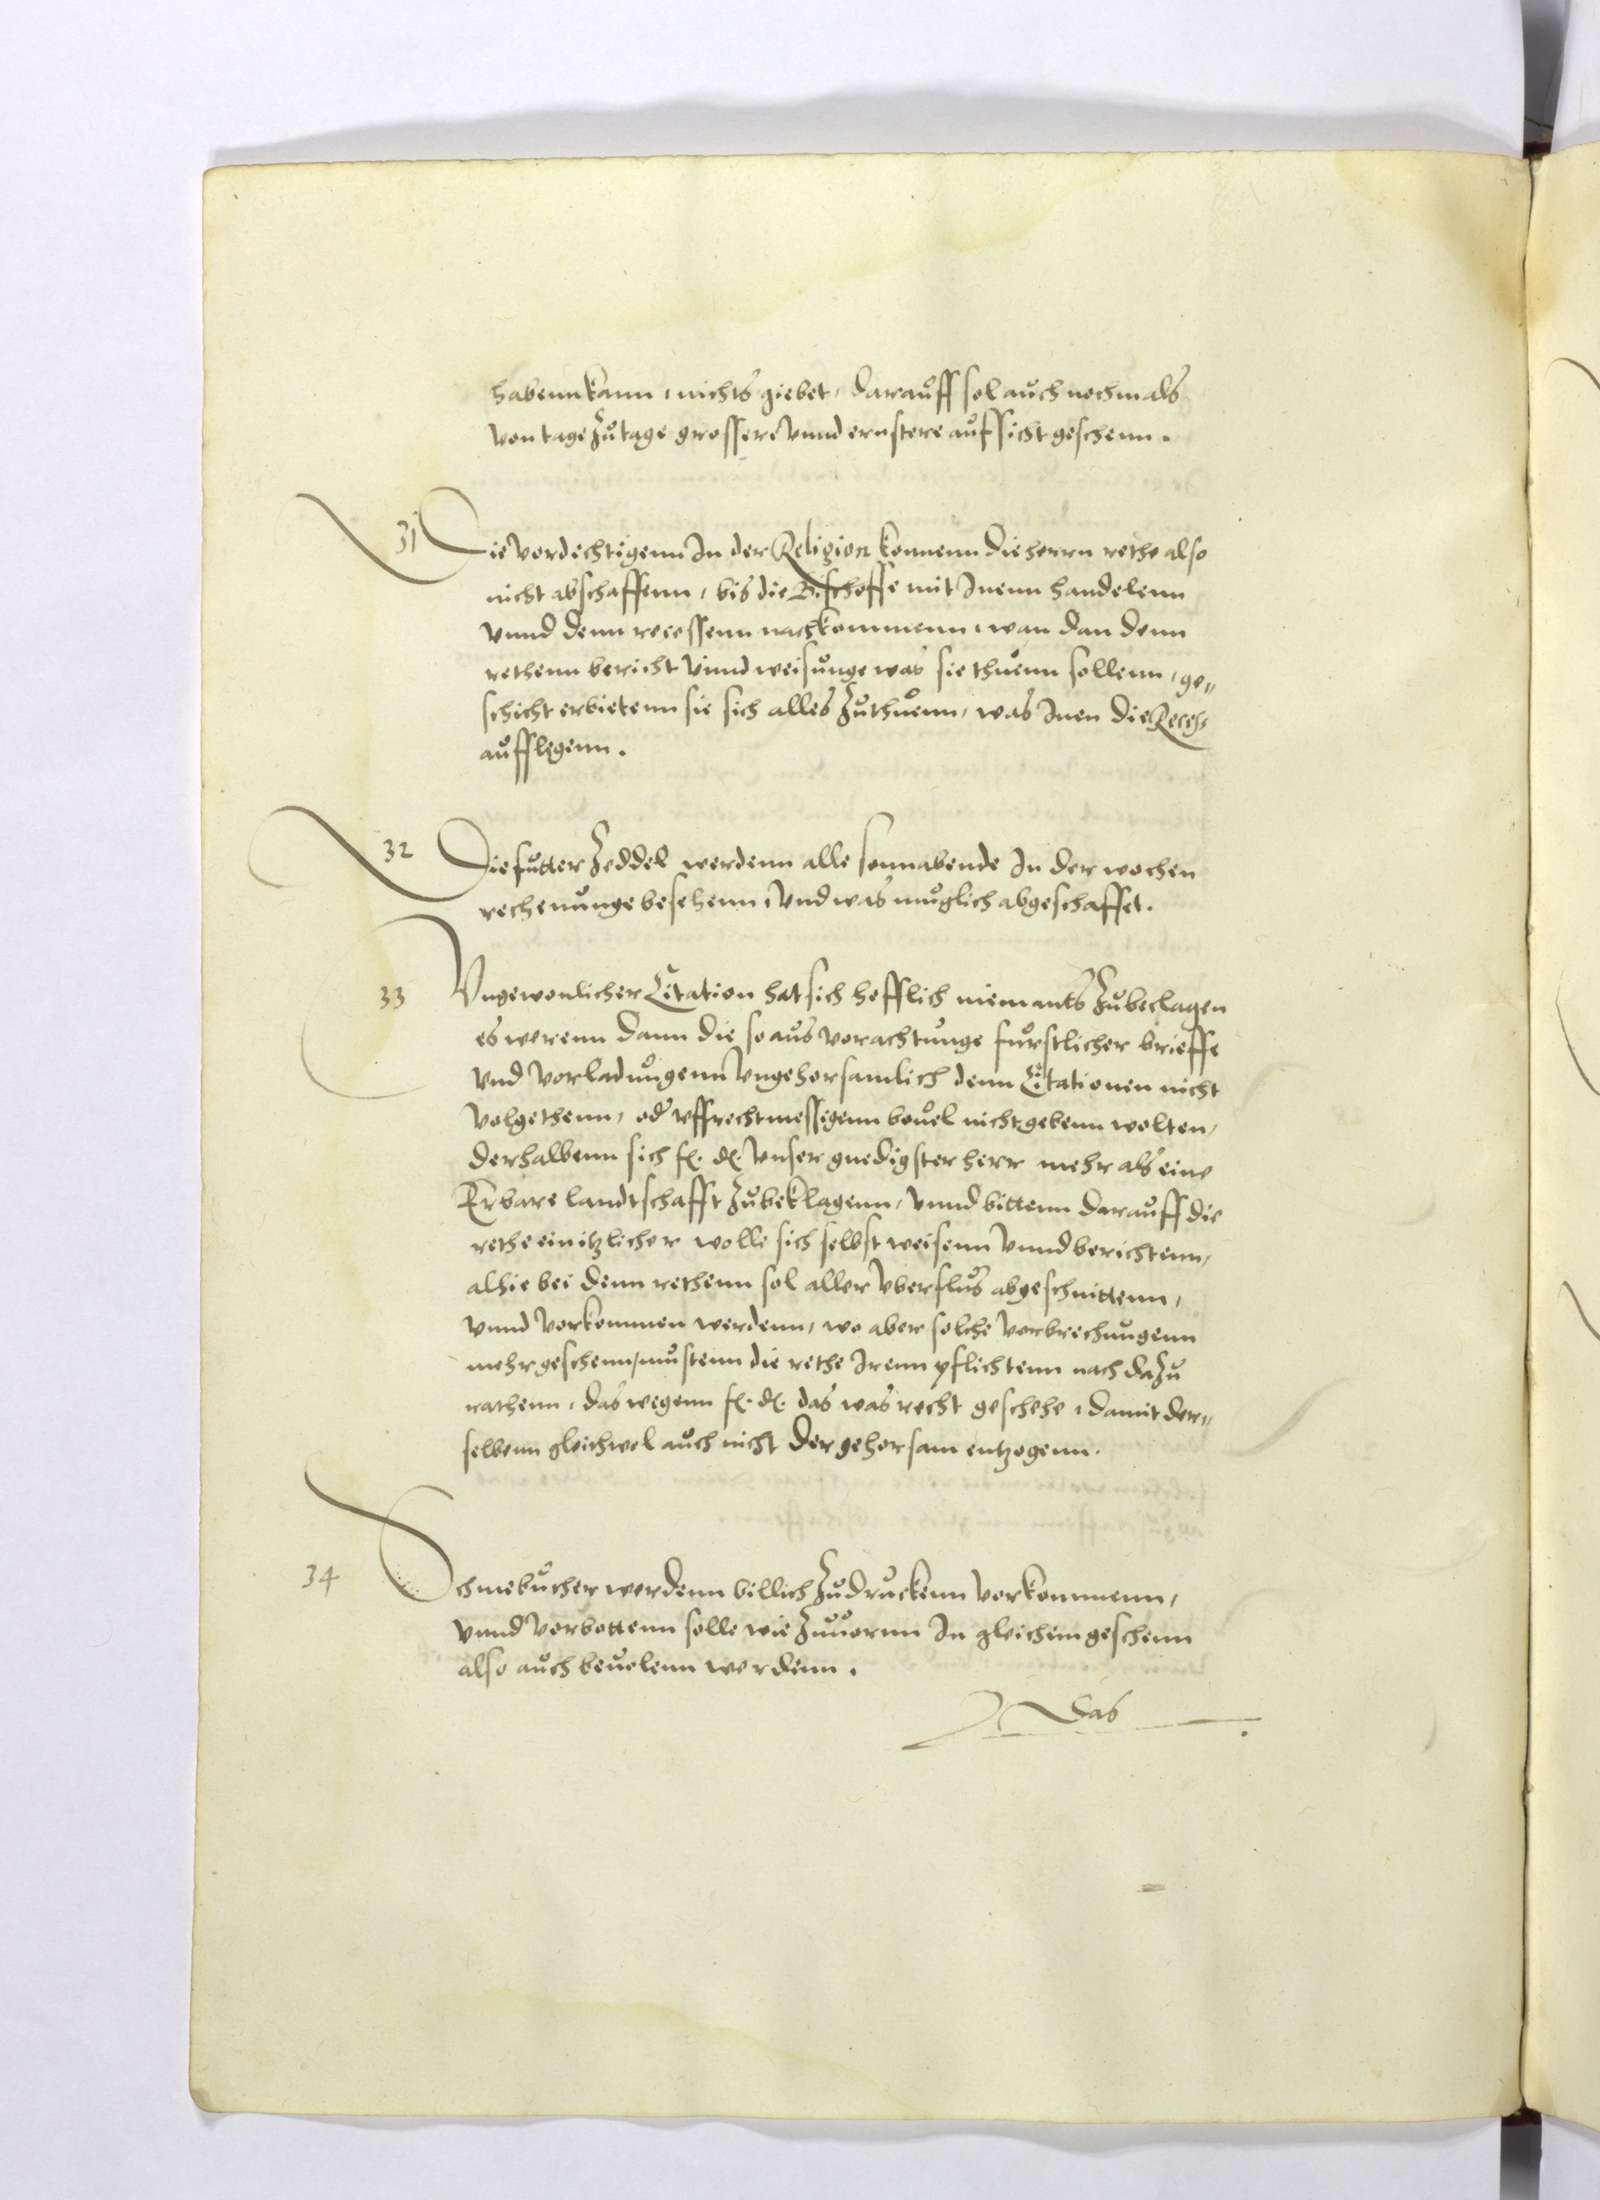 habenn kann, nichts giebet, darauff sol auch nochmals
von tage zu tage grossere vnnd ernstere aufsicht geschenn.
31 Die vordechtigenn In der Religion konnenn die herrn rethe also
nicht abschaffenn, bis die Bischoffe mit Inenn handelenn
vnnd denn recessenn nachkommenn, wan dan denn
rethenn bericht vnnd weisunge was sie thuenn sollenn, ge„
schicht erbietenn sie sich alles zuthuenn, was Inen die Recess
aufflegenn.
32 Die futter zeddel werdenn alle sonnabende In der wochen
rechenunge besehenn, vnd was muglich abgeschaffet.
33 Vngewonlicher Citation hat sich hefflich niemants zubeclagen
es werenn dann die so aus vorachtunge furstlicher brieffe
vnd vorladungenn vngehorsamlich denn Citationen nicht
volgethenn, oder vff rechtmessigenn beuel nicht gebenn wolten,
derhalbenn sich f. d. vnser gnedigster herr mehr als eine
Erbare landtschafft zubeklagenn, vnnd bittenn darauff die
rethe ein itzlicher wolle sich selbst weisenn vnnd berichtenn,
alhie bei denn rethenn sol aller vberflus abgeschnittenn,
vnnd vorkommen werdenn, wo aber solche vorbrechungenn
mehr geschenn, mustenn die rethe Irenn pflichtenn nach dazu
rathenn, das wegenn f. d. das was recht geschehe, damit der„
selbenn gleichwol auch nicht der gehorsam entzogenn.
34 Schmebucher werdenn billich zudruckenn vorkommenn,
vnnd vorbottenn solle wie zuuornn In gleichem geschenn
also auch beuolenn werdenn.
Das